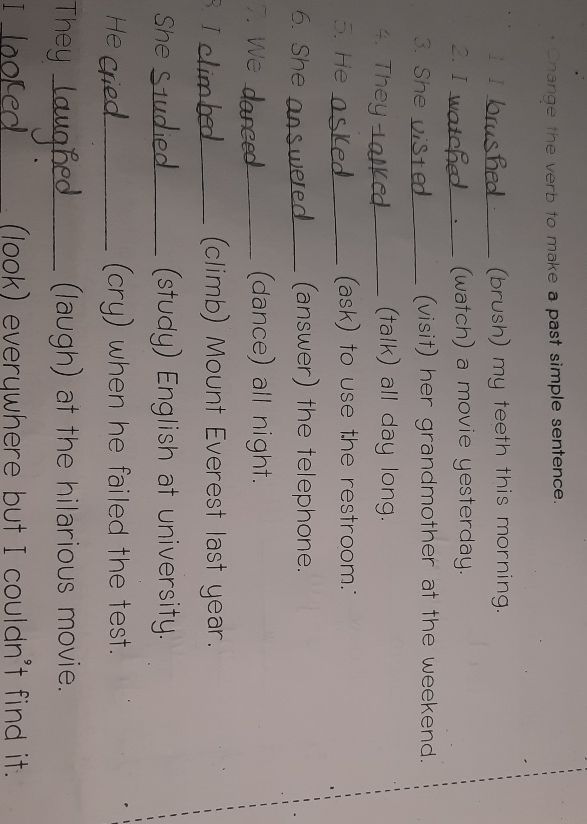 Change the verb to make a past simple sentence.
1. I brushed (brush) my teeth this morning.
2. I watched (watch) a movie yesterday.
3. She visted (visit) her grandmother at the weekend.
4. They talked (talk) all day long.
5. He asked (ask) to use the restroom.
6. She answered (answer) the telephone.
7. We danced (dance) all night.
8. I climbed (climb) Mount Everest last year.
She studied (study) English at university.
He cried (cry) when he failed the test.
They laughed (laugh) at the hilarious movie.
I looked (look) everywhere but I couldn't find it.